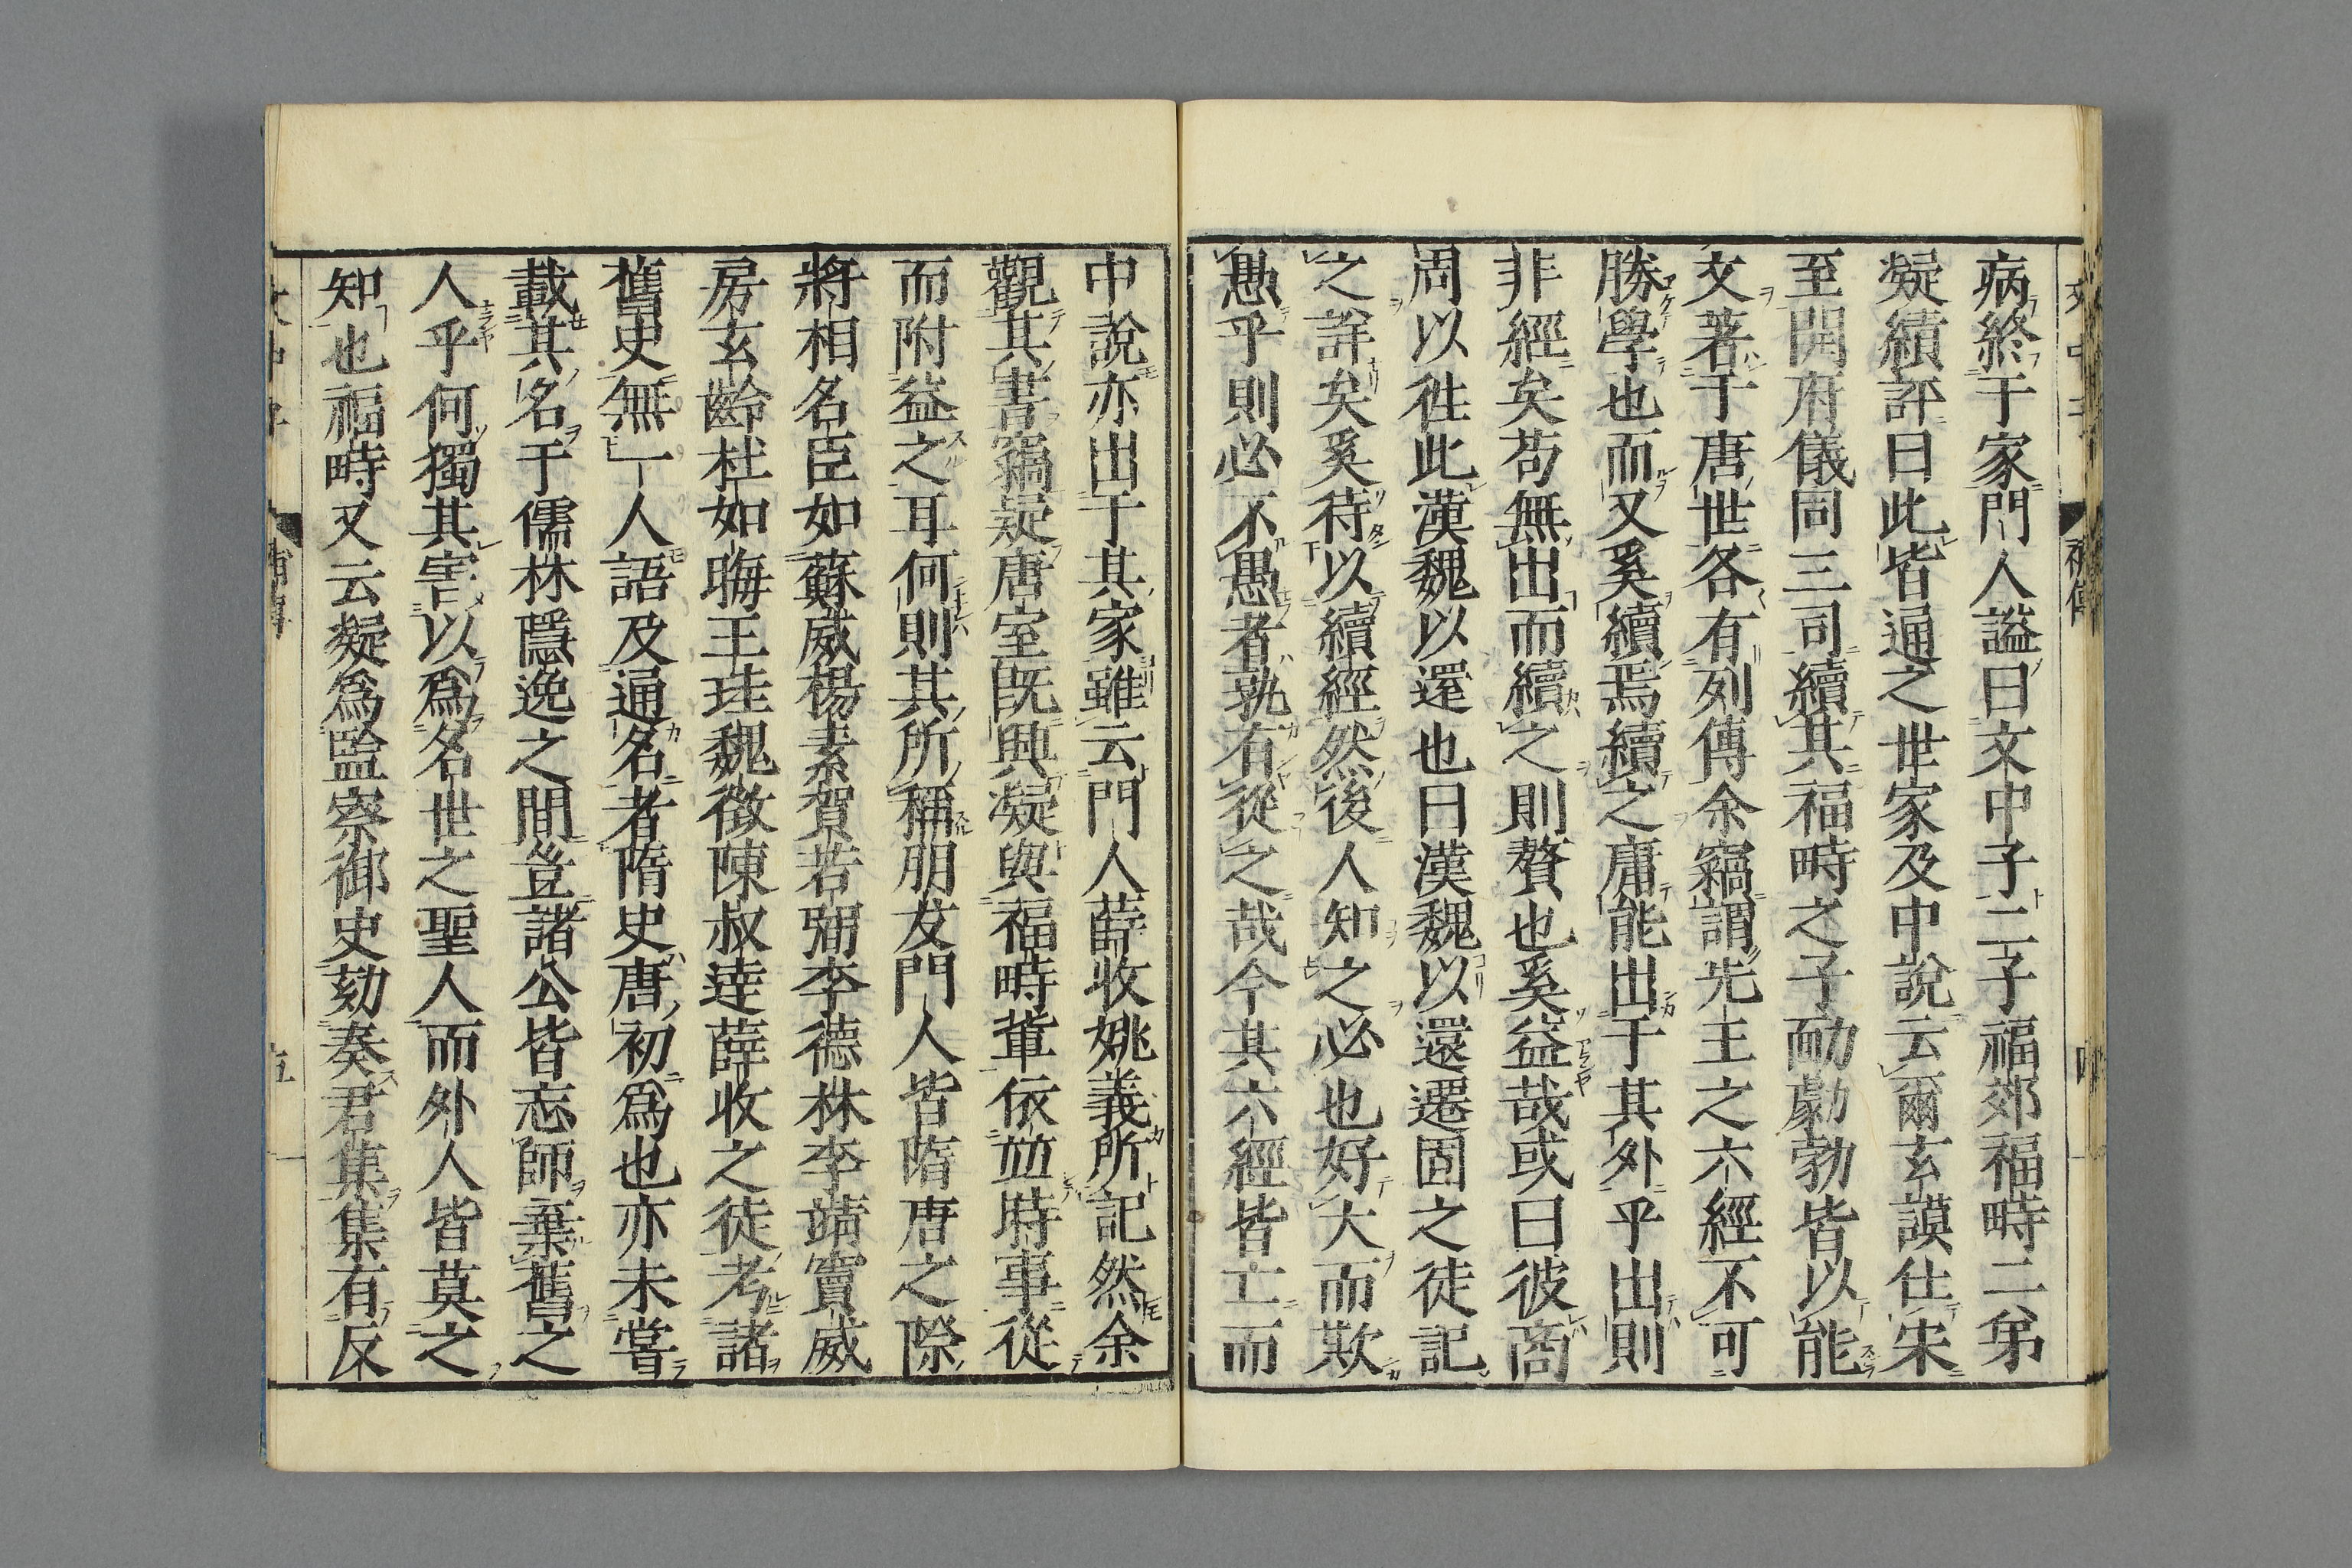 病終于家門人謚曰文中子二子福郊福畤二弟
凝績評曰此皆通之世家及中說云爾玄謨仕宋
至開府儀同三司績其福畤之子勔勮勃皆以能
文著于唐世各有列傳余竊謂先王之六經不可
勝學也而又奚續焉續之庸能出于其外乎出則
非經矣苟無出而續之則贅也奚益哉或曰彼商
周以徃此漢魏以還也曰漢魏以還遷固之徒記
之詳矣奚待以續經然後人知之必也好大而欺
愚乎則必不愚者孰有從之哉今其六經皆亡而
中說亦出于其家雖云門人薛收姚義所記然余
觀其書竊疑唐室既興凝與福畤輩依並時事從
而附益之耳何則其所稱朋友門人皆隋唐之際
將相名臣如蘇威楊素賀若弼李德林李靖竇威
房玄齡杜如晦王珪魏徵陳叔逹薛收之徒考諸
舊史無一人語及通名者隋史唐初爲也亦未嘗
載其名于儒林隱逸之間豈諸公皆忘師棄舊之
人乎何獨其家以爲名世之聖人而外人皆莫之
知也福畤又云凝爲監察御史劾奏君集有反
文中子
補傳
五